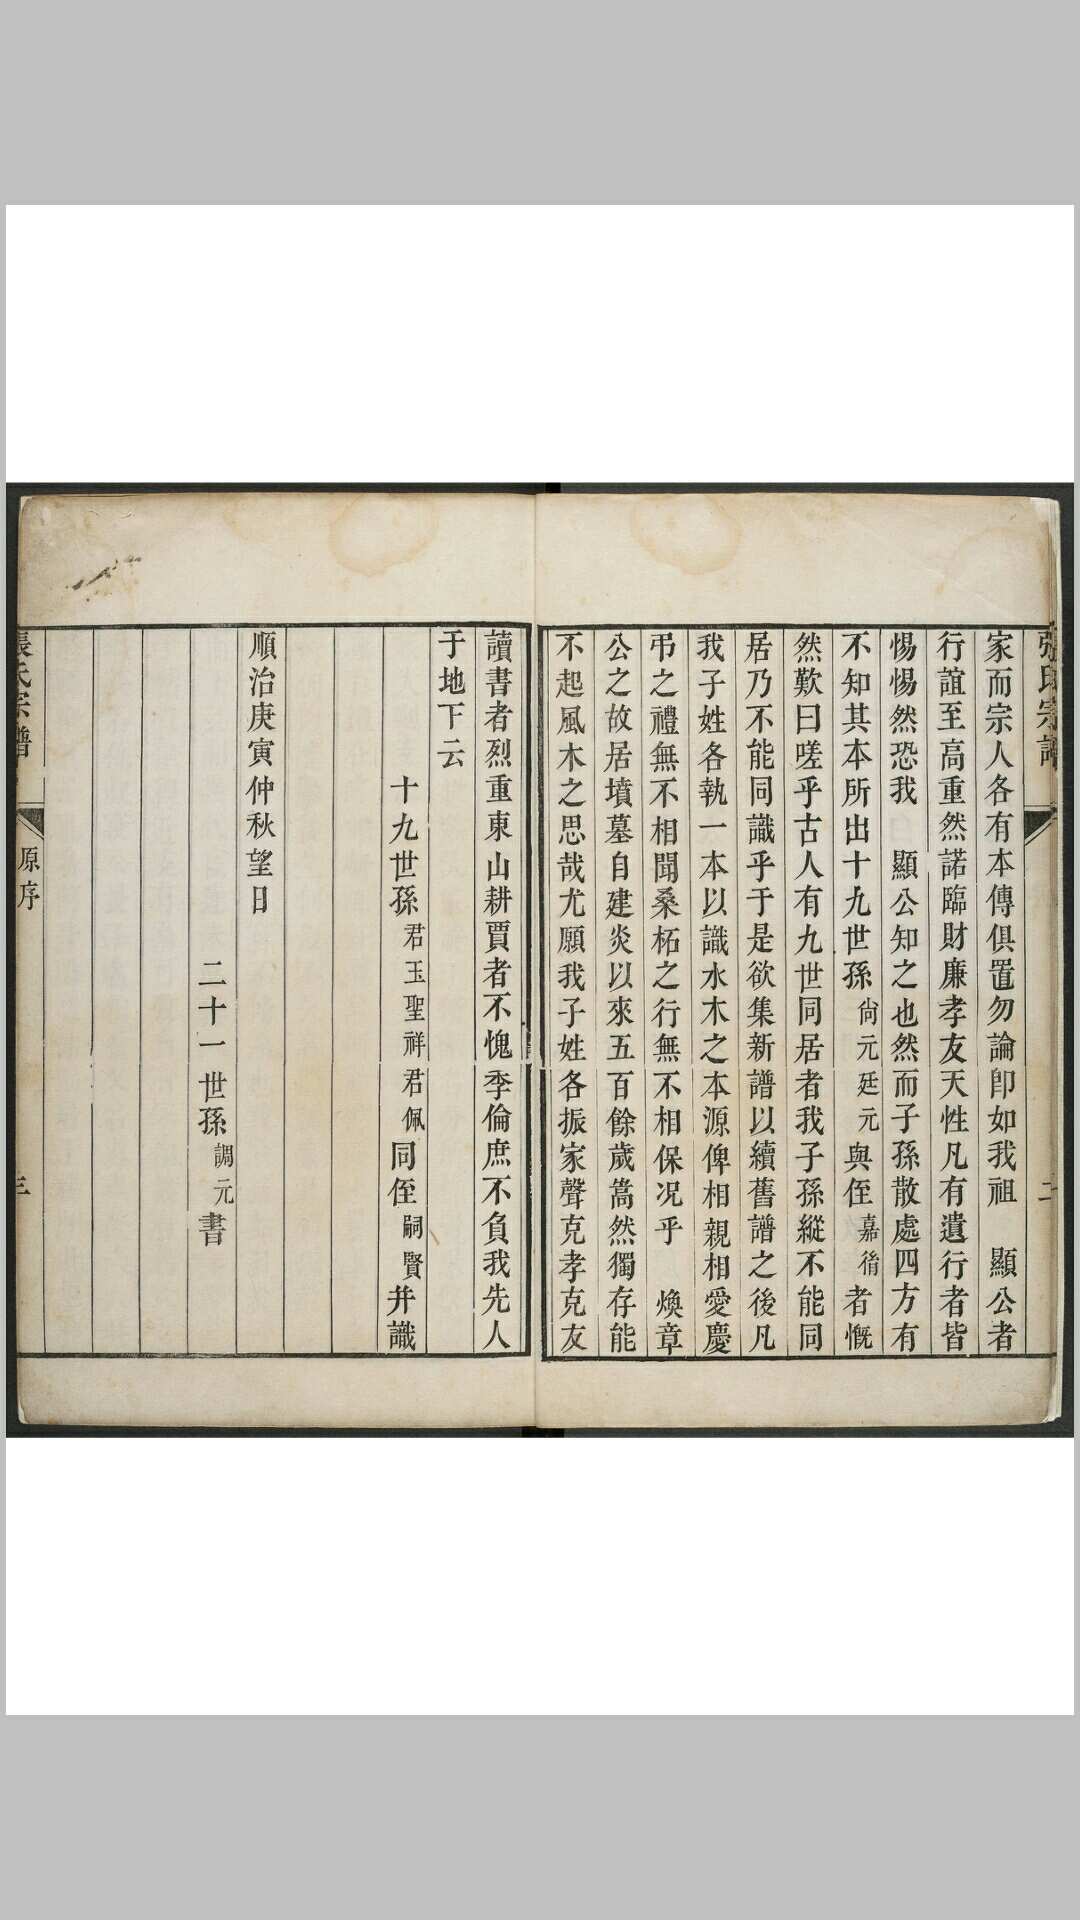 張氏宗譜
二
家而宗人各有本傳俱置勿論卽如我祖　顯公者
行誼至高重然諾臨財廉孝友天性凡有遺行者皆
惕惕然恐我　顯公知之也然而子孫散處四方有
不知其本所出十九世孫尙元廷元與侄嘉㣧者慨
然歎曰嗟乎古人有九世同居者我子孫縱不能同
居乃不能同識乎于是欲集新譜以續舊譜之後凡
我子姓各執一本以識水木之本源俾相親相愛慶
弔之禮無不相聞桑柘之行無不相保况乎　煥章
公之故居墳墓自建炎以來五百餘歲蒿然獨存能
不起風木之思哉尤願我子姓各振家聲克孝克友
讀書者烈重東山耕賈者不愧季倫庶不負我先人
于地下云
十九世孫君玉聖祥君佩同侄嗣賢幷識
順治庚寅仲秋望日
二十一世孫調元書
張氏宗譜
原序
三